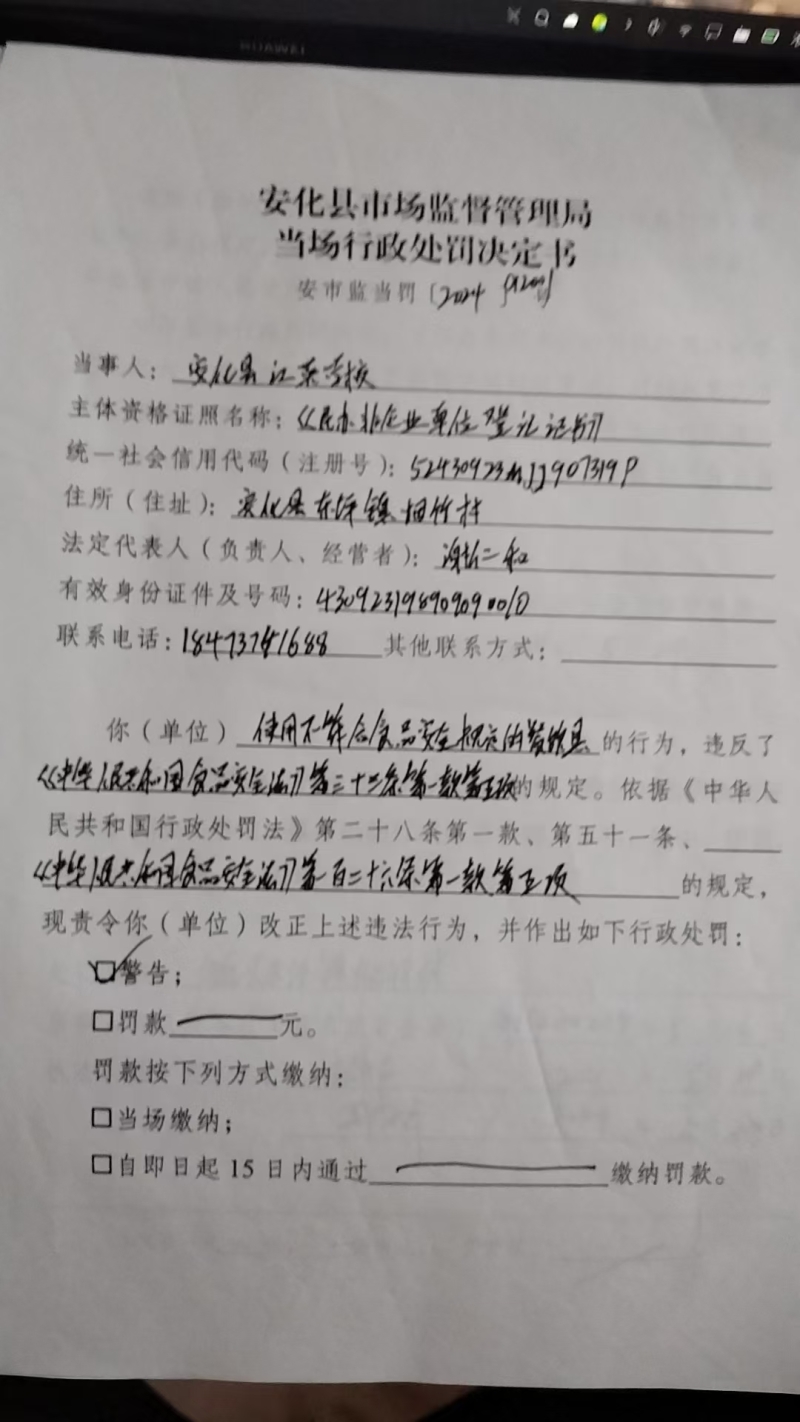 HUAWEI
安化县市场监督管理局
当场行政处罚决定书
安市监当罚〔2024
当事人：安化县江英学校
主体资格证照名称：《民办非企业单位登记证书》
统一社会信用代码（注册号）：52430923MJJ907319P
住所（住址）：安化县东坪镇烟竹村
法定代表人（负责人、经营者）：二和
有效身份证件及号码：430923198909090010
联系电话：18473741688 其他联系方式：
你（单位）使用不符合食品安全规定的餐饮具的行为，违反了
《中华人民共和国食品安全法》第三十三条第一款第五项的规定。依据《中华人
民共和国行政处罚法》第二十八条第一款、第五十一条、
《中华人民共和国食品安全法》第一百二十六条第一款第五项的规定，
现责令你（单位）改正上述违法行为，并作出如下行政处罚：
☑警告；
□罚款 元。
罚款按下列方式缴纳：
□当场缴纳；
□自即日起15日内通过 缴纳罚款。